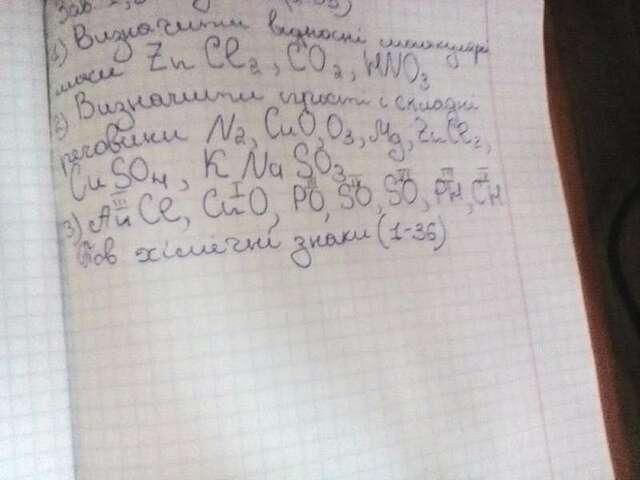 1) Визначити відносні молекулярні
маси ZnCl2, CO2, HNO3
2) Визначити прості і складні
речовини N2, CuO, O3, Mg, ZnCl2,
CuSO4, KNaSO3
3) AuCl, CuO, PO, SO, SO, PH, CH
III I III IV VI III IV
Пов хімічні знаки (1-36)